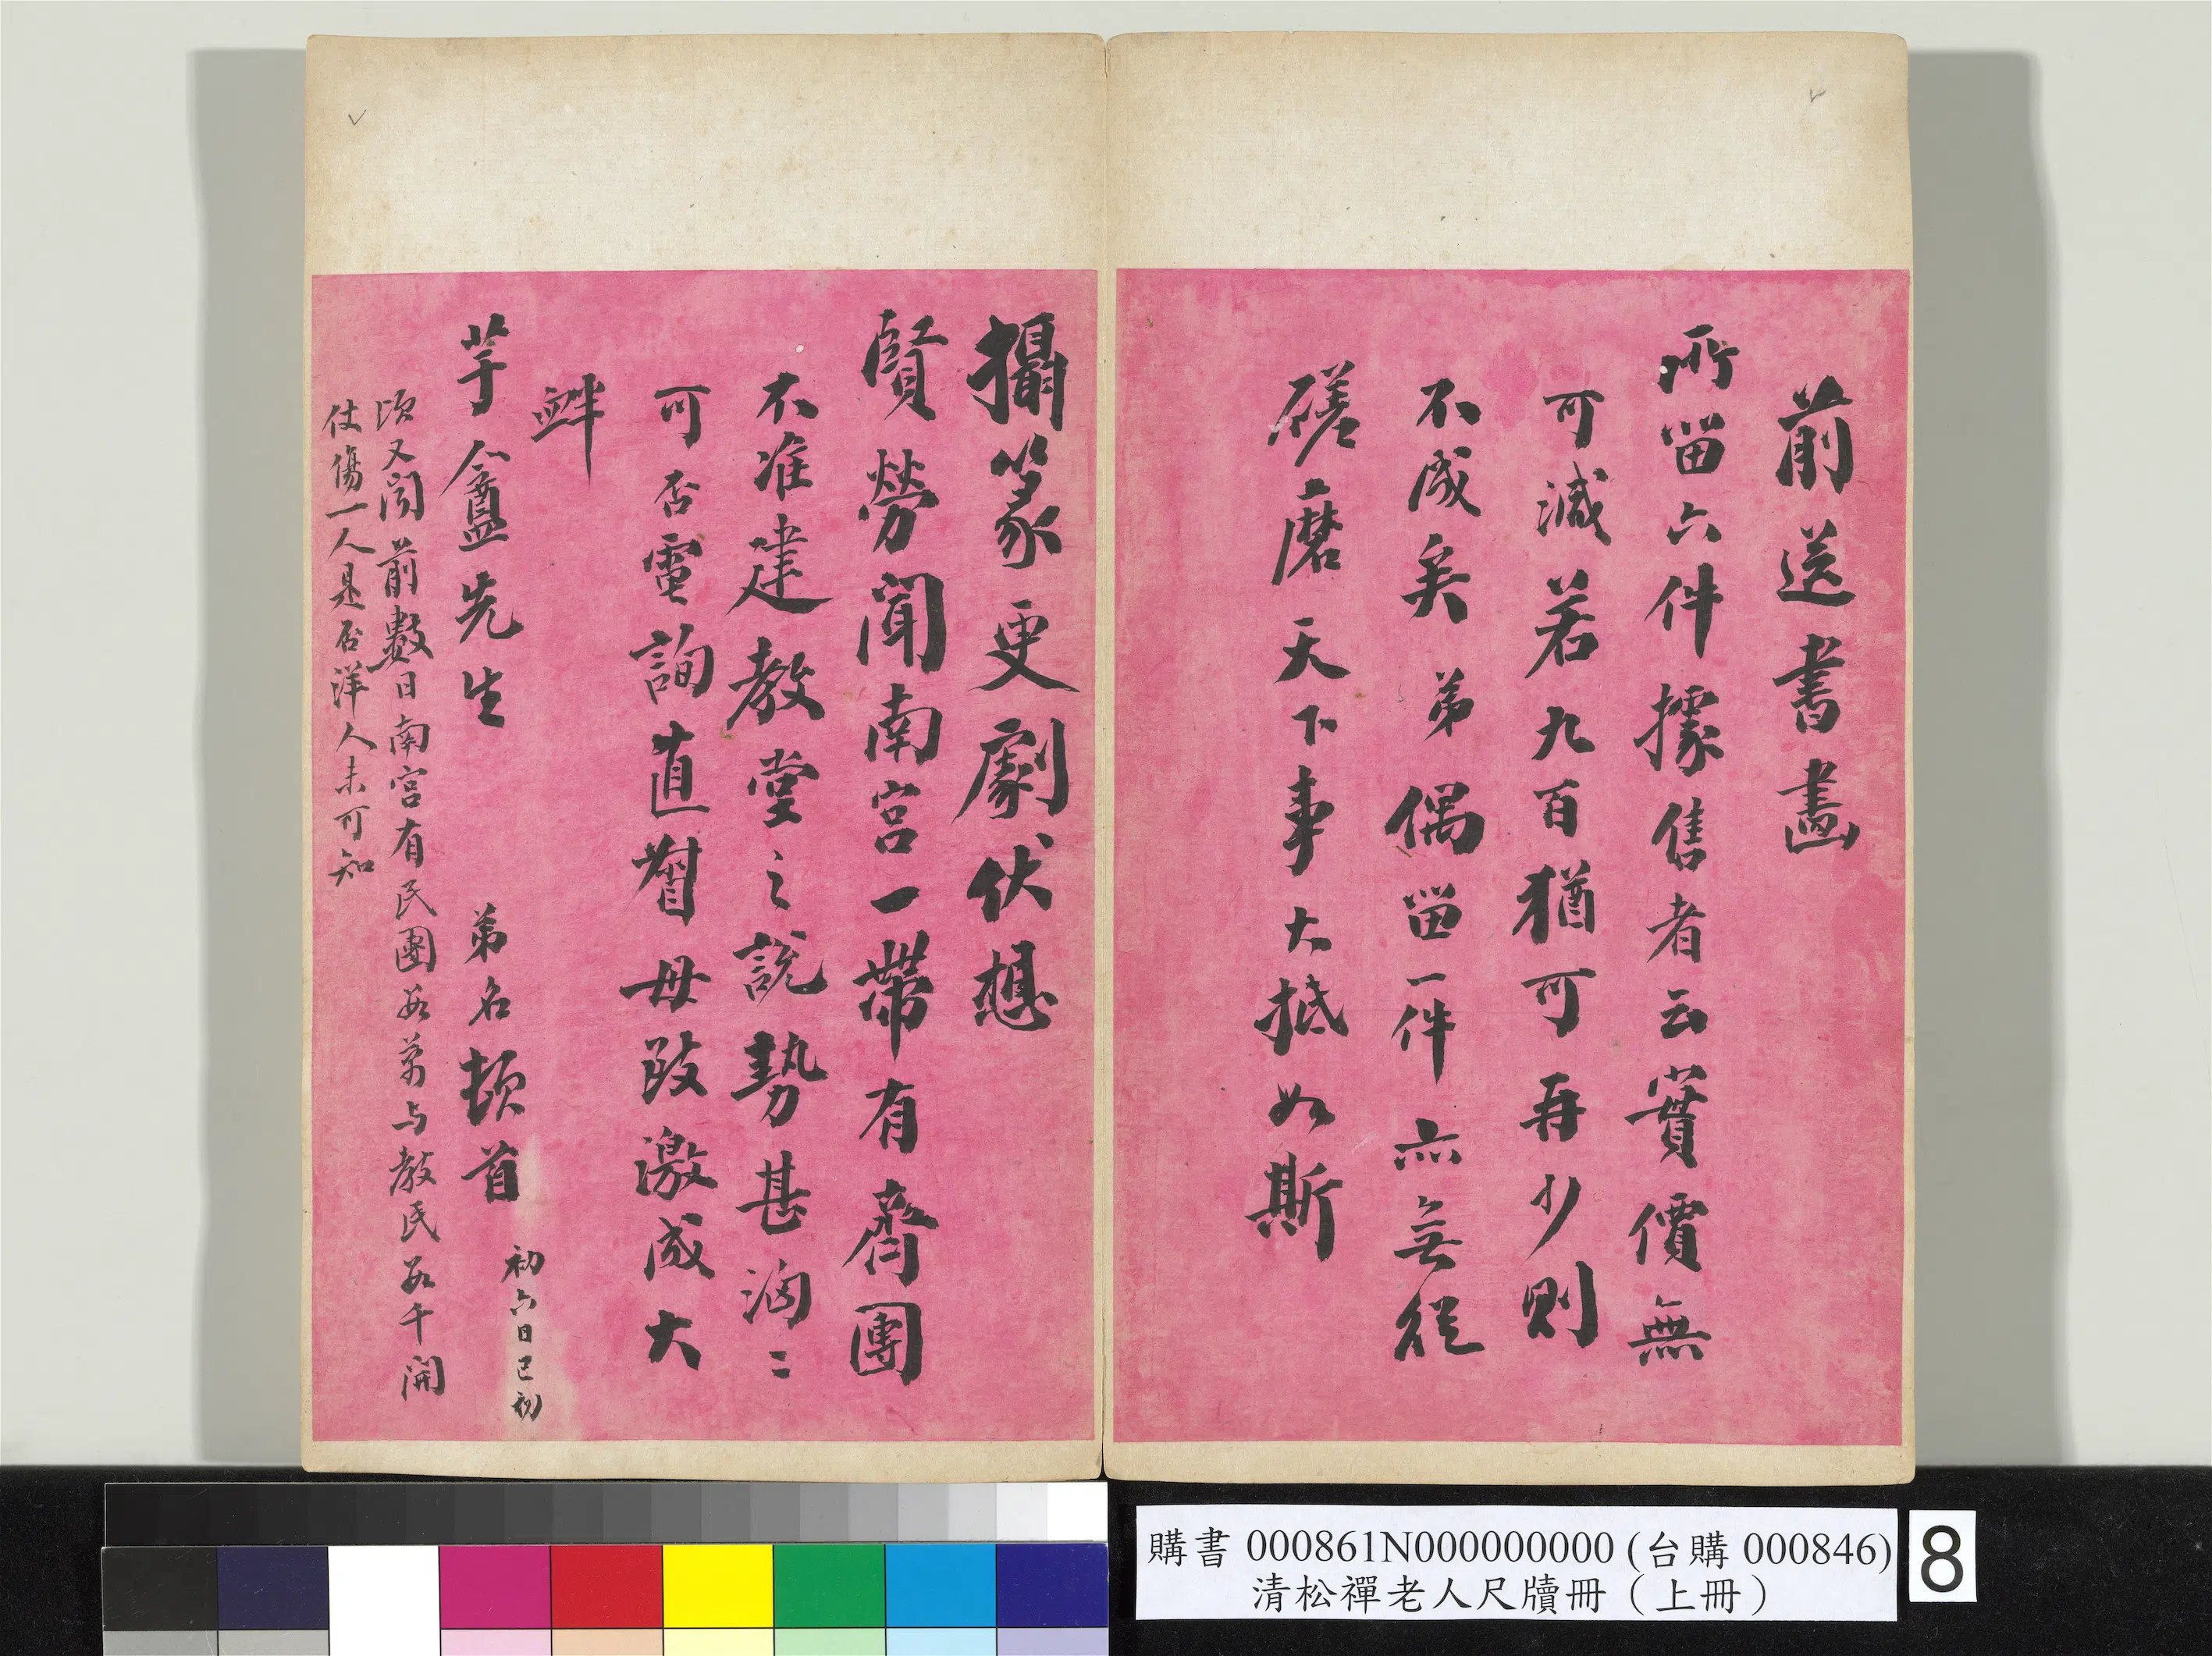 前送書畫
所留六件據售者云實價無
可減若九百猶可再少則
不成矣弟偶留一件亦無從
磋磨天下事大抵如斯
攝篆更劇伏想
賢勞聞南宮一帶有齊團
不准建教堂之說勢甚洶〻
可否電詢直督毋致激成大
衅
芋盦先生
弟名頓首
初六日巳初
頃又聞前數日南宮有民團數萬与教民數千開
仗傷一人是否洋人未可知
購書 000861N000000000 (台購 000846)
清松禪老人尺牘冊（上冊）
8